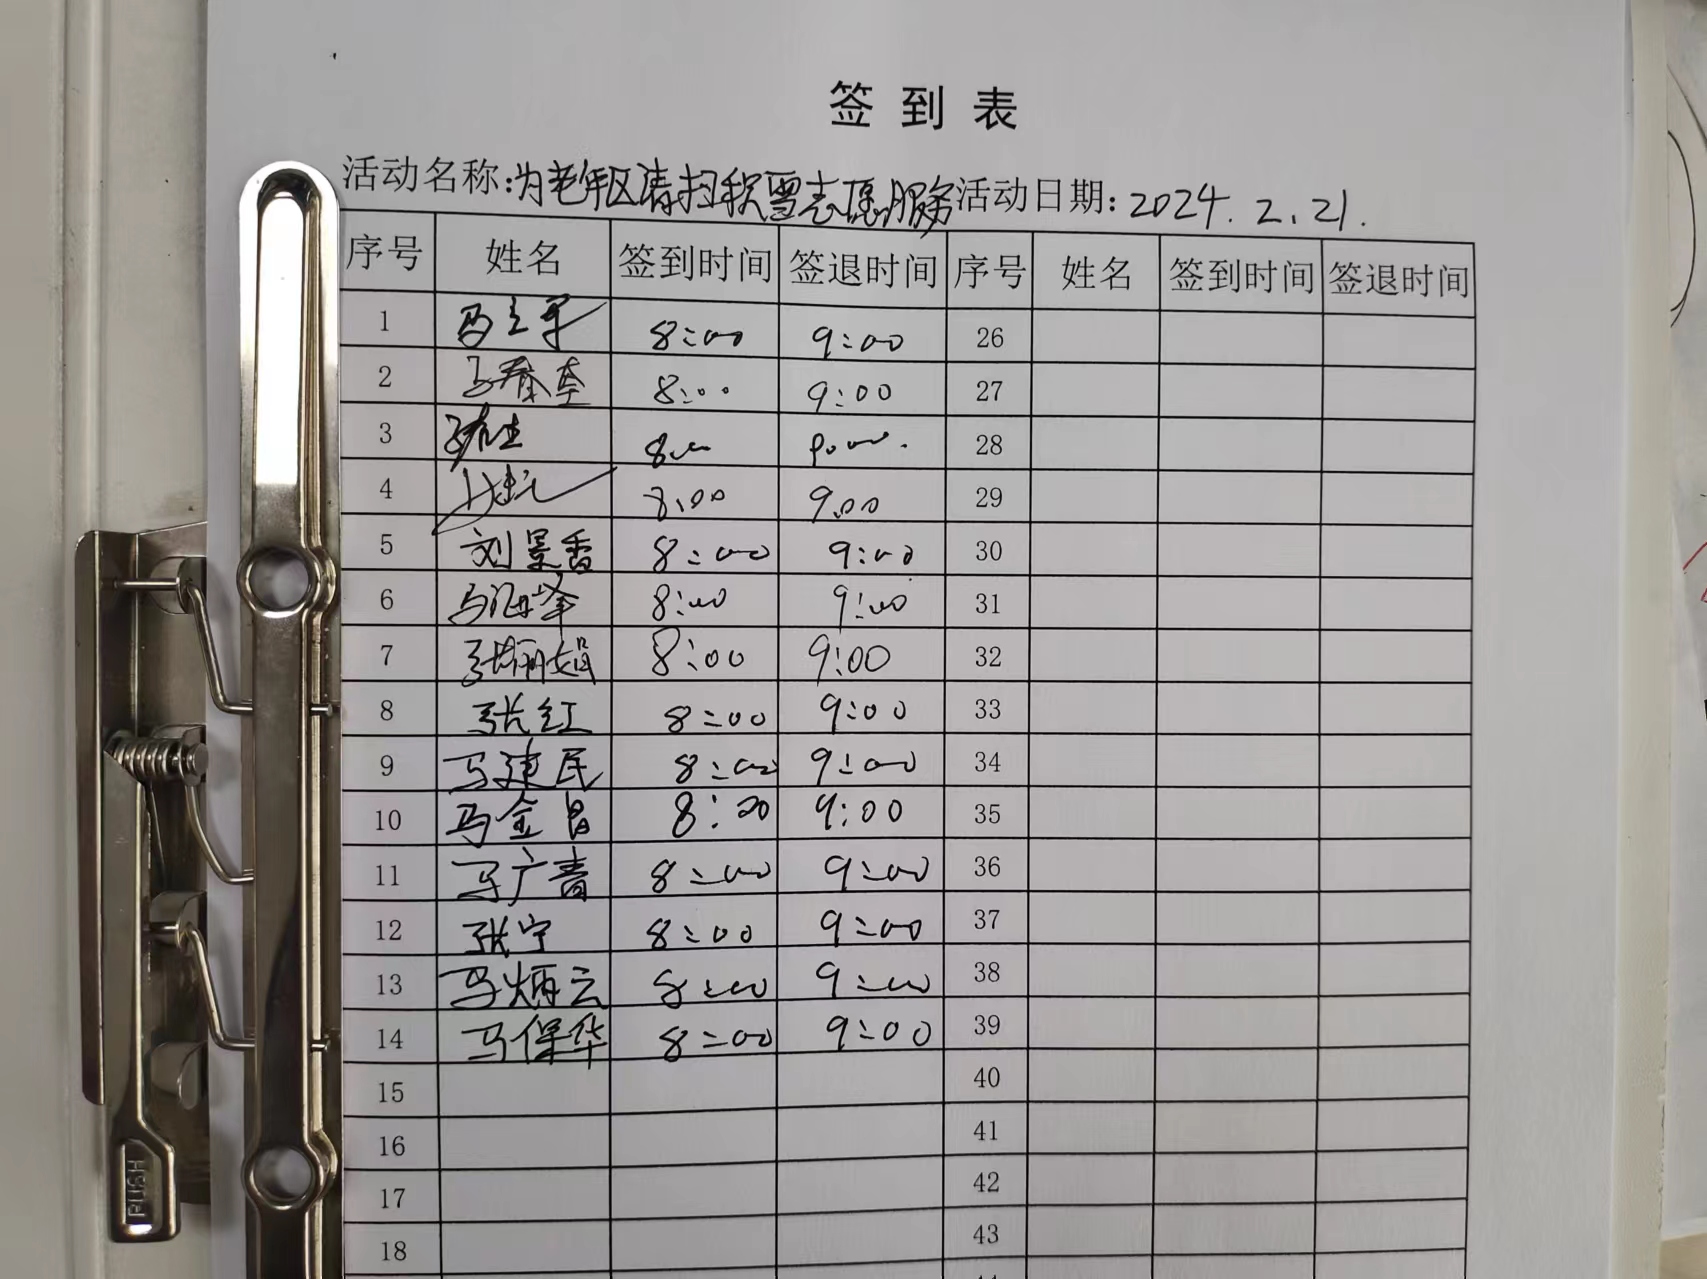 签到表
活动名称:为老年区清扫积雪志愿服务 活动日期: 2024.2.21.
序号 姓名 签到时间 签退时间 序号 姓名 签到时间 签退时间
1 8:00 9:00 26
2 8:00 9:00 27
3 28
4 8.00 9.00 29
5 刘景香 8:00 9:00 30
6 马海峰 8:00 9:00 31
7 张丽娟 8:00 9:00 32
8 张红 8:00 9:00 33
9 马建民 8:00 9:00 34
10 马金昌 8:00 9:00 35
11 马广青 8:00 9:00 36
12 张宁 8:00 9:00 37
13 马炳云 8:00 9:00 38
14 马保华 8:00 9:00 39
15 40
16 41
17 42
18 43
PUSH